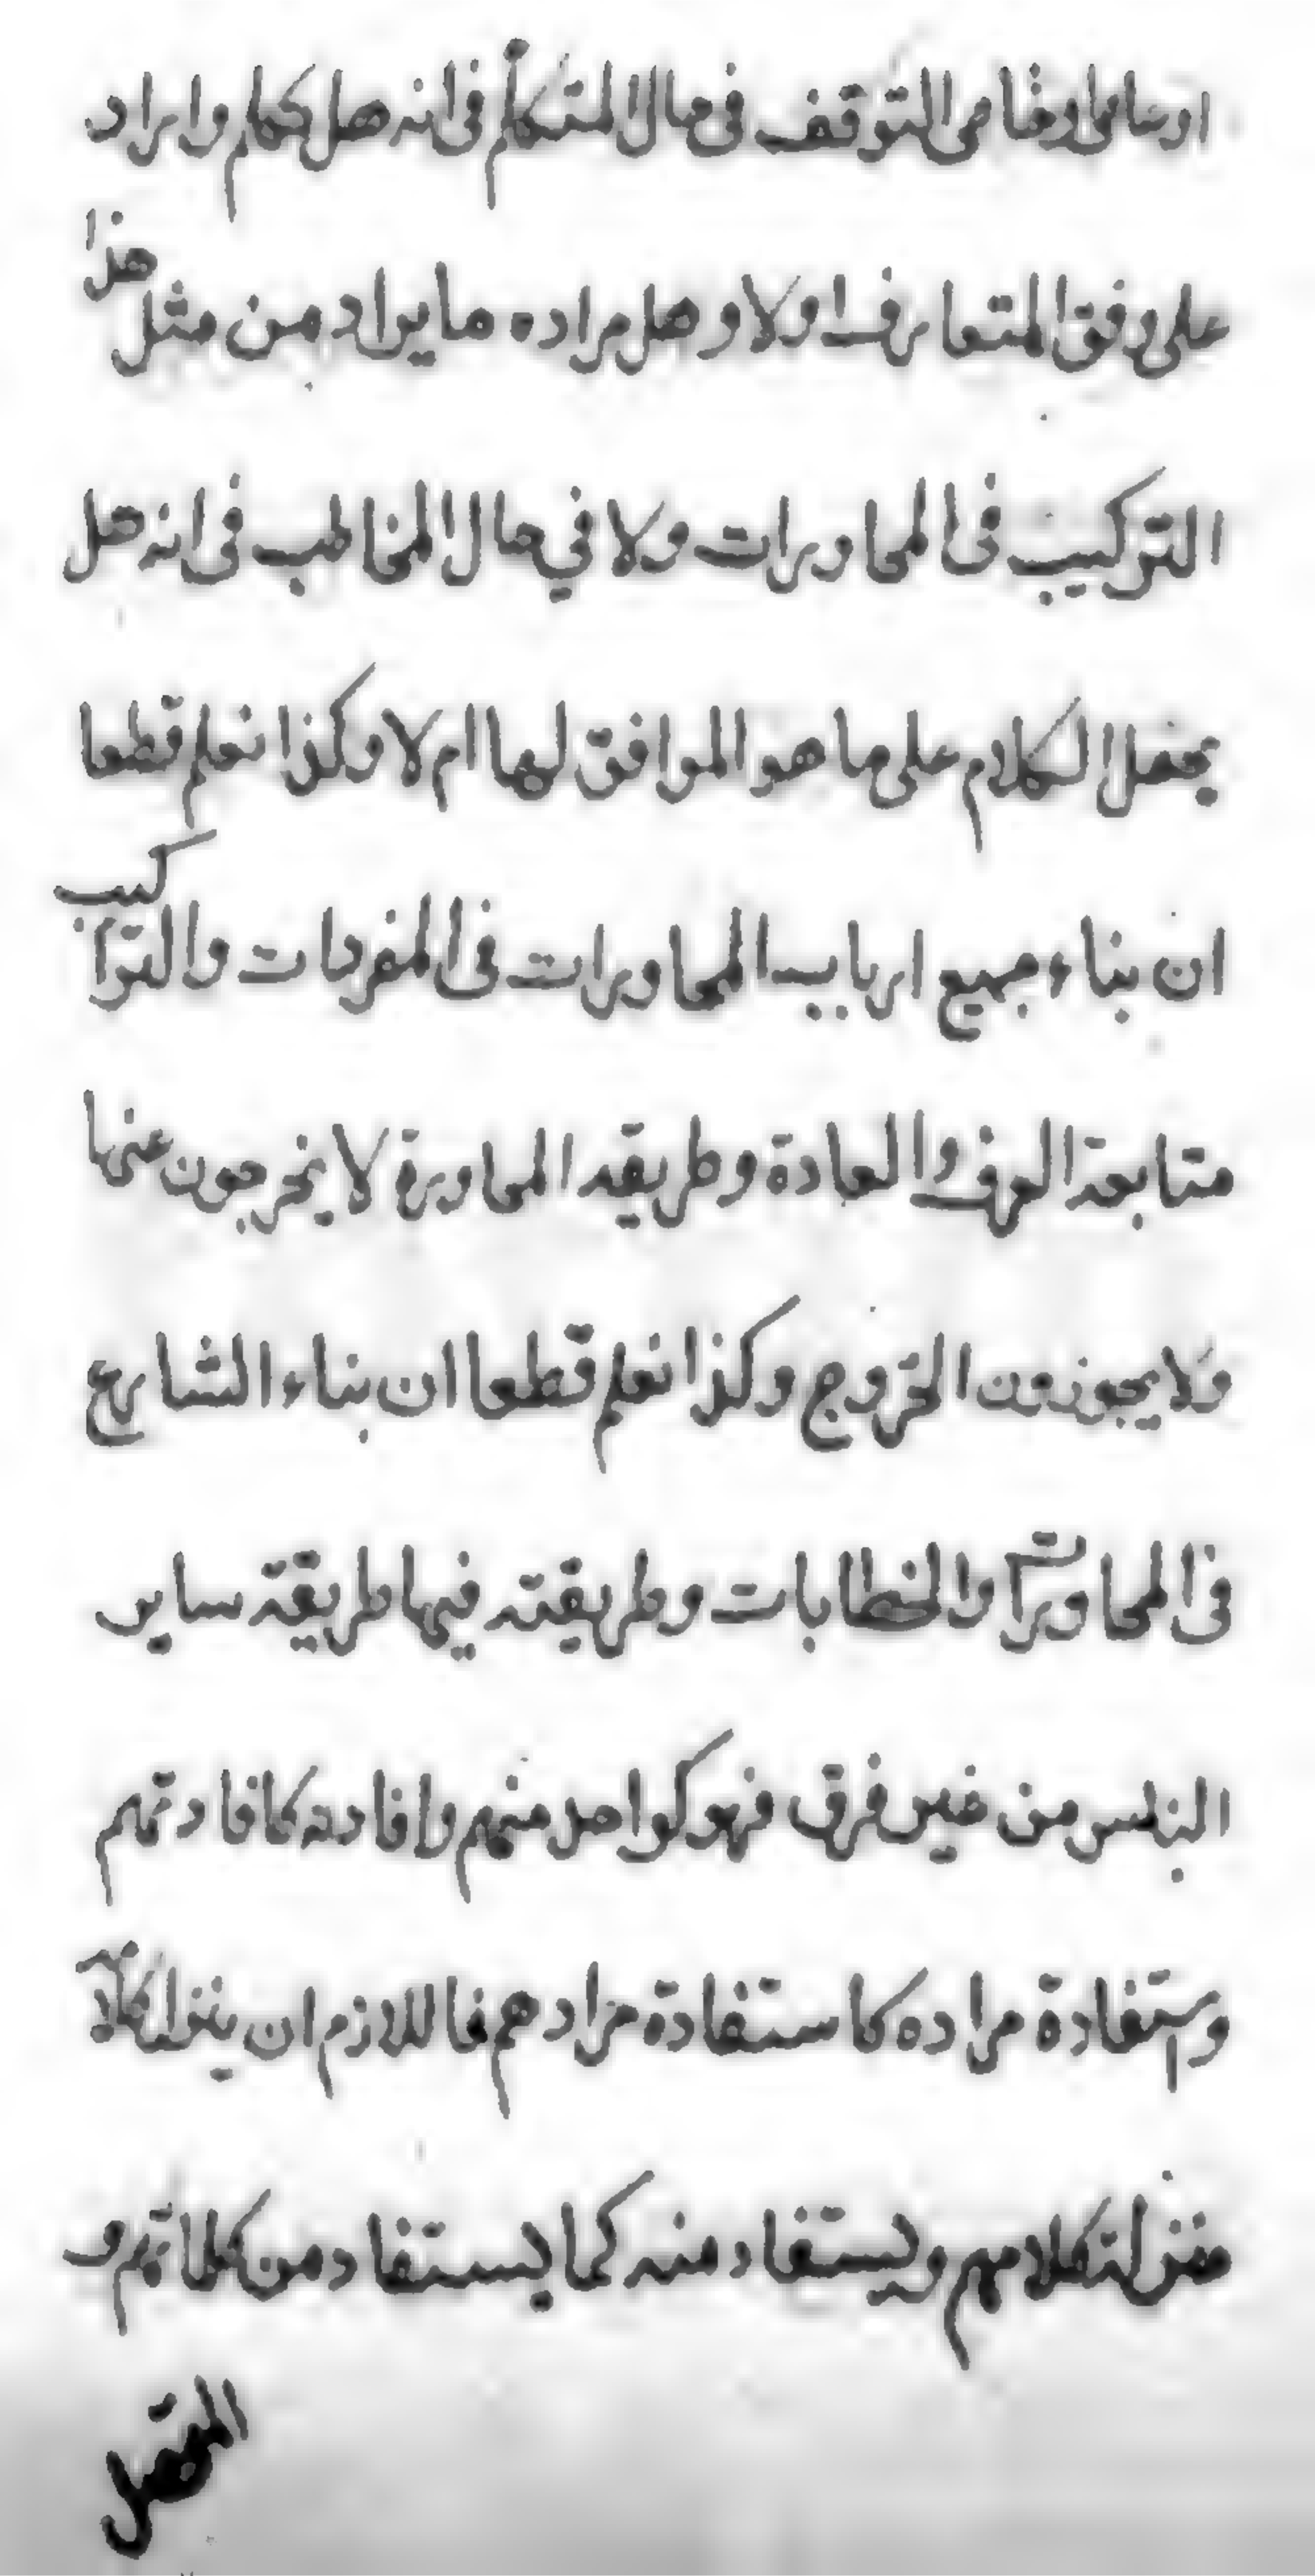 التوقف فى حال المتكلم فى انه هل تكلم واراد
على وفق المتعارف اولا وهل مراده ما يراد من مثل هذا
التركيب فى المحاورات ولا في حال المخاطب فى انه هل
الكلام على ما هو الموافق لها ام لا وكذا نعلم قطعا
ان بناء جميع ارباب المحاورات فى المفردات والتراكيب
متابعة العرف والعادة وطريقة المحاورة لا يخرجون عنها
ولا يجوزون الخروج وكذا نعلم قطعا ان بناء الشارع
فى المحاورات والخطابات وطريقته فيها طريقة ساير
الناس من غير فرق فهو كواحد منهم وافادته كافادتهم
واستفادة مراده كاستفادة مرادهم فاللازم ان ينزل كلامه
منزلة كلامهم ويستفاد منه كما يستفاد من كلماتهم و